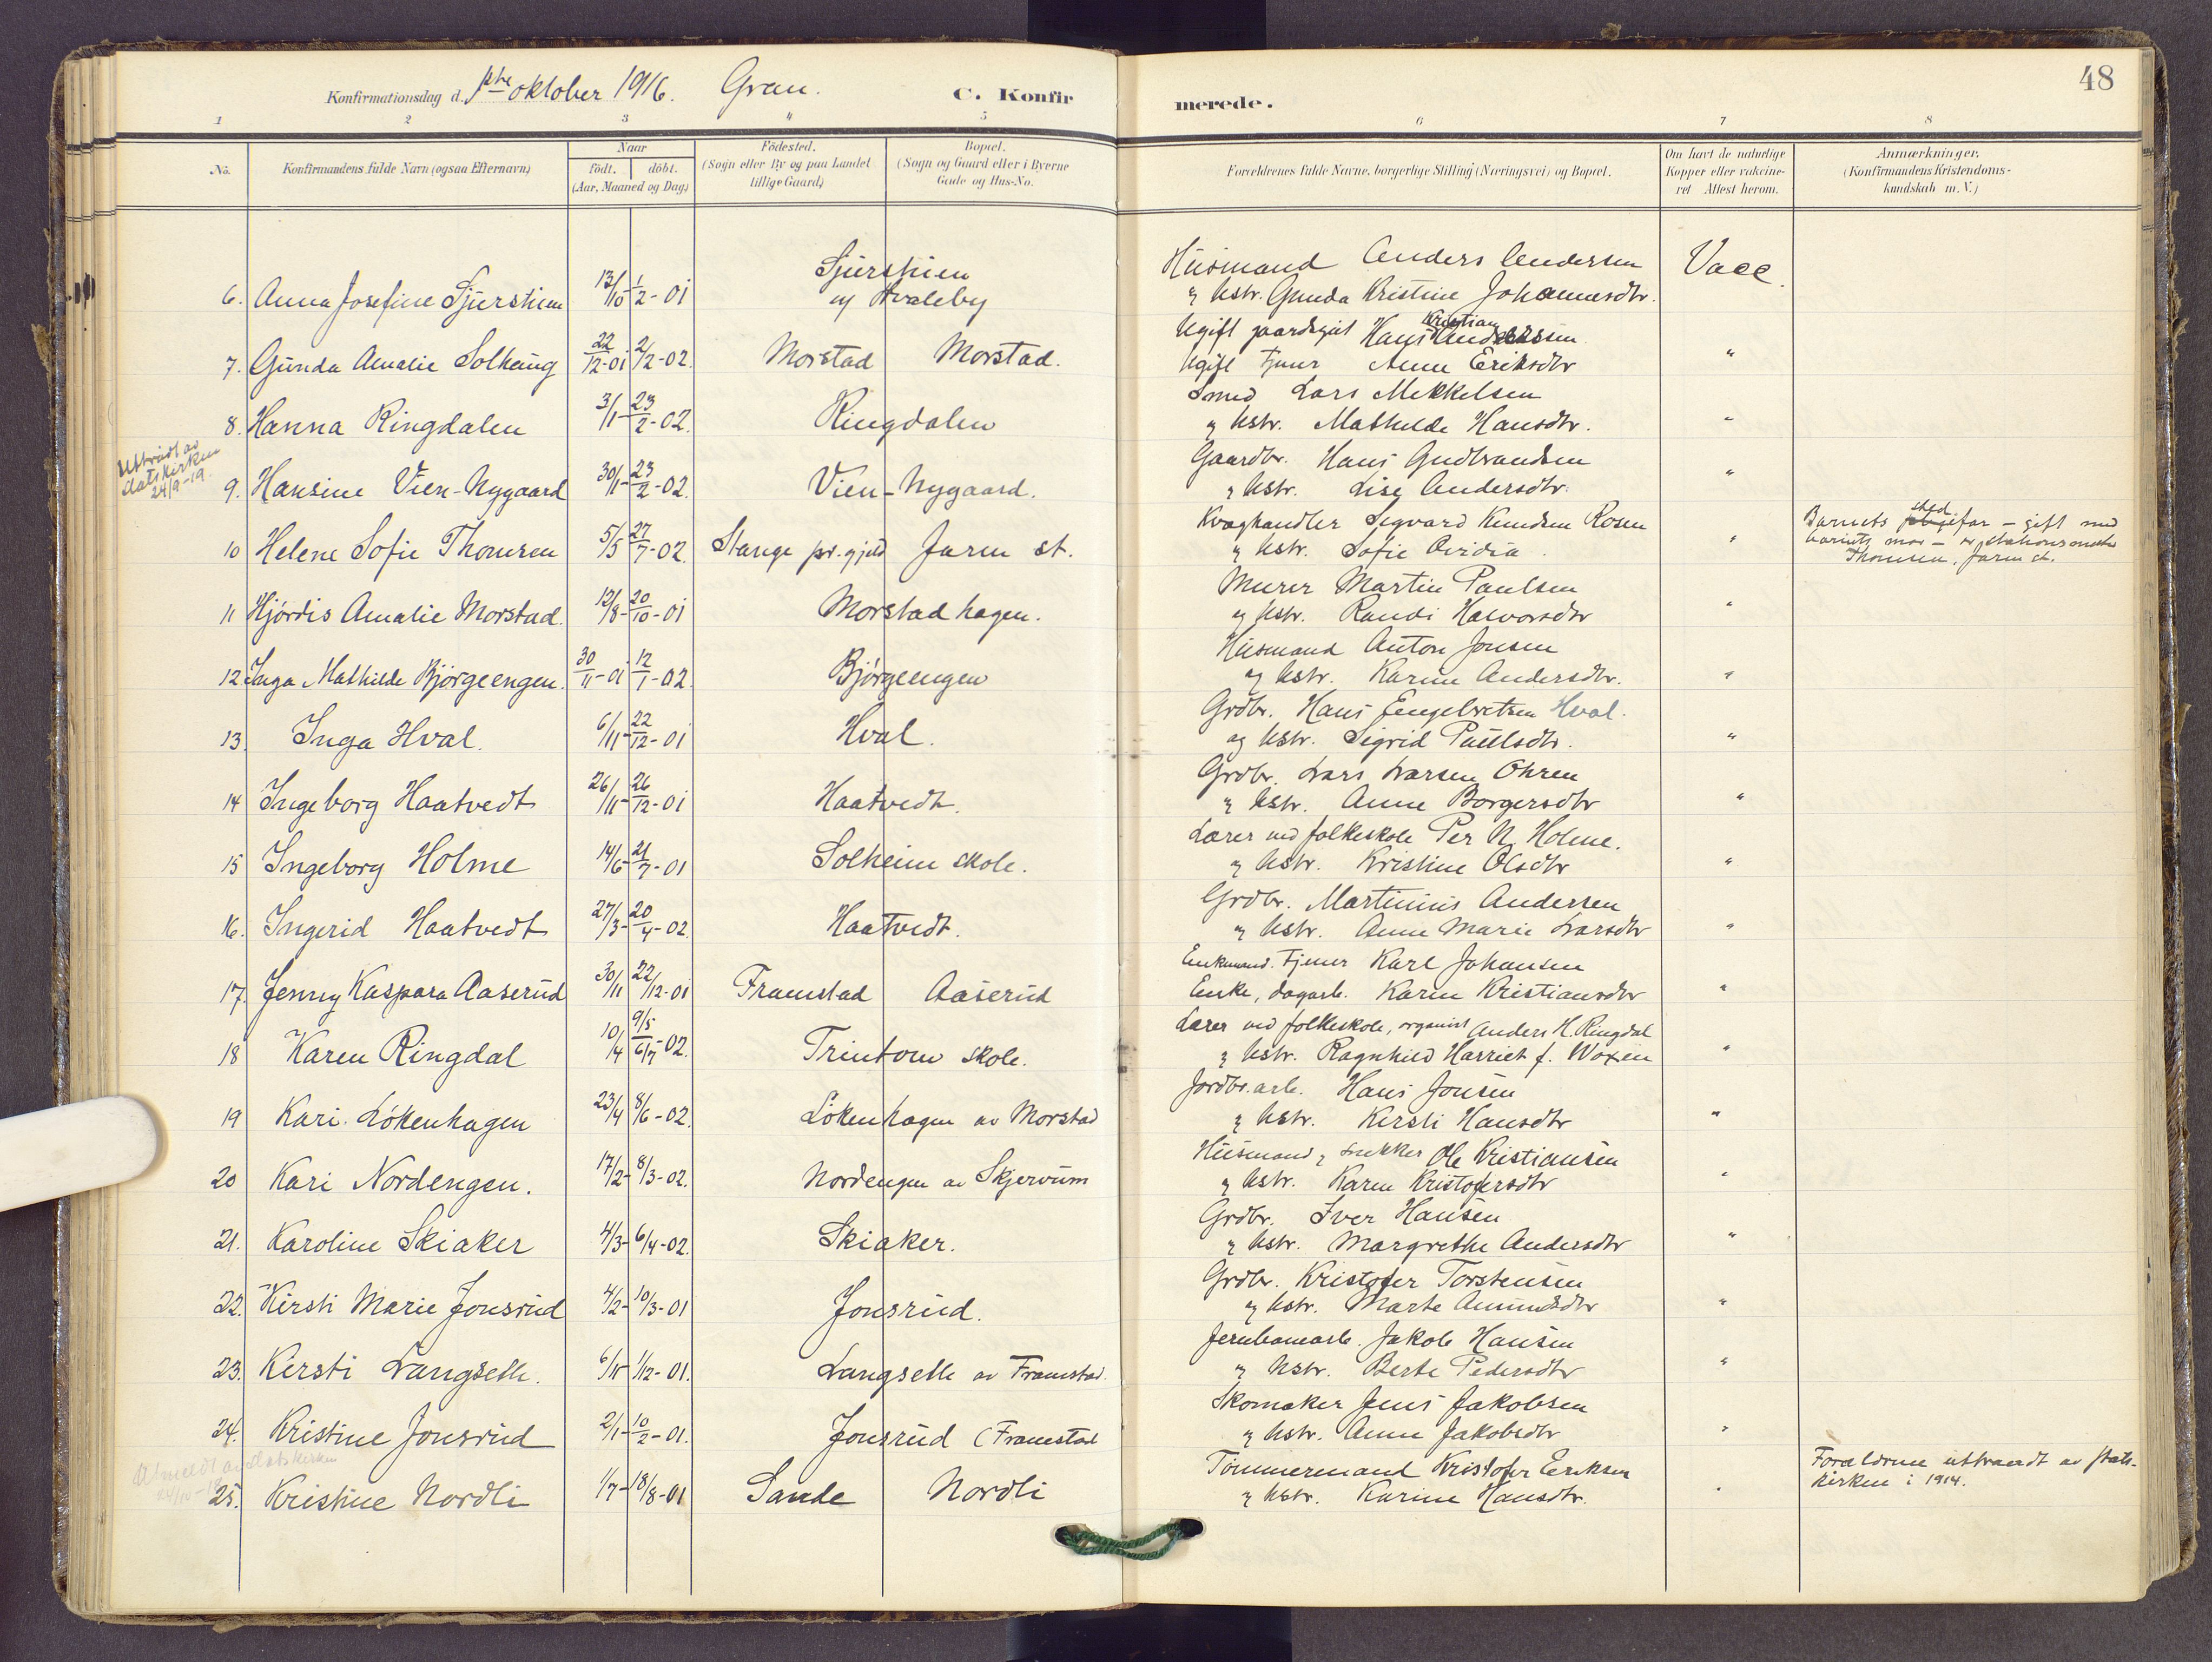 48
Konfirmationsdag d. 1ste oktober 1916. Gran. C. Konfirmerede.
1 2 3 4 5 6 7 8
No. Konfirmandens fulde Navn (ogsaa Efternavn) Naar født. døbt. (Aar, Maaned og Dag) Födested. (Sogn eller By og paa Landet tillige Gaard) Bopæl. (Sogn og Gaard eller i Byerne Gade og Hus-No. Forældrenes fulde Navne, borgerlige Stilling (Næringsvei) og Bopæl. Om havt de naturlige Kopper eller vakcineret Attest herom. Anmærkninger. (Konfirmandens Kristendomskundskab m. V.)
6. Anna Josefine Sjurstuen 13/10 - 1/2 - 01 Sjurstuen av Hvaleby Husmand Anders Andersen Vacc.
og hstr. Gunda Kristine Johannesdtr.
7. Gunda Amalie Solhaug 22/12-01 2/2-02. Morstad Morstad. Ugift gaardsgut Hans Kristian
Ugift tjener Anne Eriksdtr "
8. Hanna Ringdalen 3/1 - 23/2-02. Ringdalen Smed Lars Mikkelsen
og hstr. Mathilde Hansdtr. "
Uttraadt av statskirken 24/9-19.
9. Hansine Vien-Nygaard 30/1 - 23/2-02. Vien-Nygaard. Gaardbr. Hans Gudbrandsen
og hstr. Lise Andersdtr. "
10 Helene Sofie Thomsen 5/5 27/7-02. Stange pr.gjeld Jaren st. Kvæghandler Sigvard Knudsen Rosen
og hstr. Sofie Ovidia. " Barnets stedfar - gift med barnets mor - er stationsmester Thomsen. Jaren st.
11 Hjördis Amalie Morstad. 12/8 - 20/10-01 Morstadhagen. Murer Martin Paulsen
og hstr. Randi Halvorsdtr "
12. Inga Mathilde Bjørgeengen. 30/11-01 12/1-02. Bjørgeengen Husmand Anton Jonsen
og hstr. Karine Andersdtr. "
13. Inga Hval. 6/11 - 22/12-01 Hval. Grdbr. Hans Engebretsen Hval.
og hstr. Sigrid Paulsdtr. "
14 Ingeborg Haatvedt 26/11 - 26/12-01 Haatvedt. Grdbr. Lars Larsen Ohren
og hstr. Anne Borgersdtr "
15 Ingeborg Holme 14/6 - 21/7-01 Solheim skole. Lærer ved folkeskole Per N. Holme.
og hstr. Kristine Olsdtr "
16. Ingerid Haatvedt 27/3 - 20/4-02. Haatvedt. Grdbr. Martinius Andersen
og hstr. Anne Marie Larsdtr "
17. Jenny Kaspara Aaserud 30/11 22/12-01 Framstad Aaserud Enkemand. tjener Karl Johansen
Enke, dagarb. Karen Kristiansdtr "
18 Karen Ringdal 10/4 9/5 6/7-02. Trintom skole. Lærer ved folkeskole, organist Anders H. Ringdal
og hstr. Ragnhild Harriet f. Woxen "
19 Kari Løkenhagen 23/4 8/6-02. Løkenhagen av Morstad Jordbr.arb. Hans Jonsen
og hstr. Kersti Hansdtr "
20 Kari Nordengen. 17/2 - 8/3-02. Nordengen av Skjervum Husmand og snekker Ole Kristiansen
og hstr. Karen Kristofersdtr "
21. Karoline Skiaker 4/3 - 6/4-02. Skiaker. Grdbr. Iver Hansen
og hstr. Margrethe Andersdtr "
22. Kirsti Marie Jonsrud 4/2 - 10/3-01 Jonsrud. Grdbr. Kristofer Torstensen
og hstr. Marte Amundsdtr "
23. Kersti Langseth. 6/11 - 1/12-01. Langseth av Framstad. Jernbanearb. Jakob Hansen
og hstr. Berte Pedersdtr "
24. Kristine Jonsrud 2/1 - 10/2-01. Jonsrud (Framstad Skomaker Jens Jakobsen
og hstr. Anne Jakobsdtr "
Utmeldt av statskirken
25. Kristine Nordli 1/7 - 18/8-01 Sande Nordli Tömmermand Kristofer Eriksen
og hstr. Karine Hansdtr. " Forældrene uttraadt av statskirken i 1914.